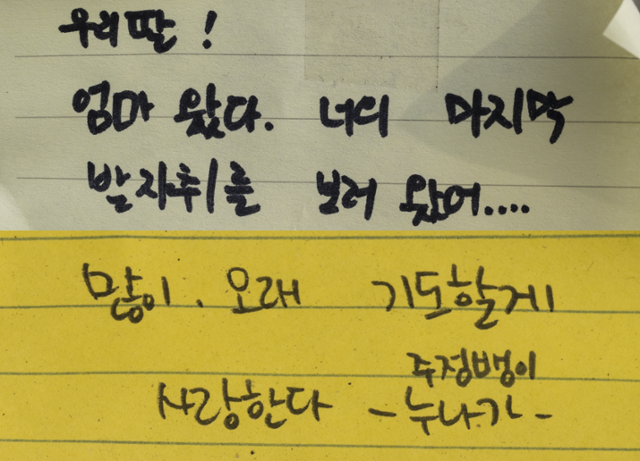 우리 딸!
엄마 왔다. 너의 마지막
발자취를 보러 왔어....
많이. 오래 기도할게
주정뱅이
사랑한다 -누나가-